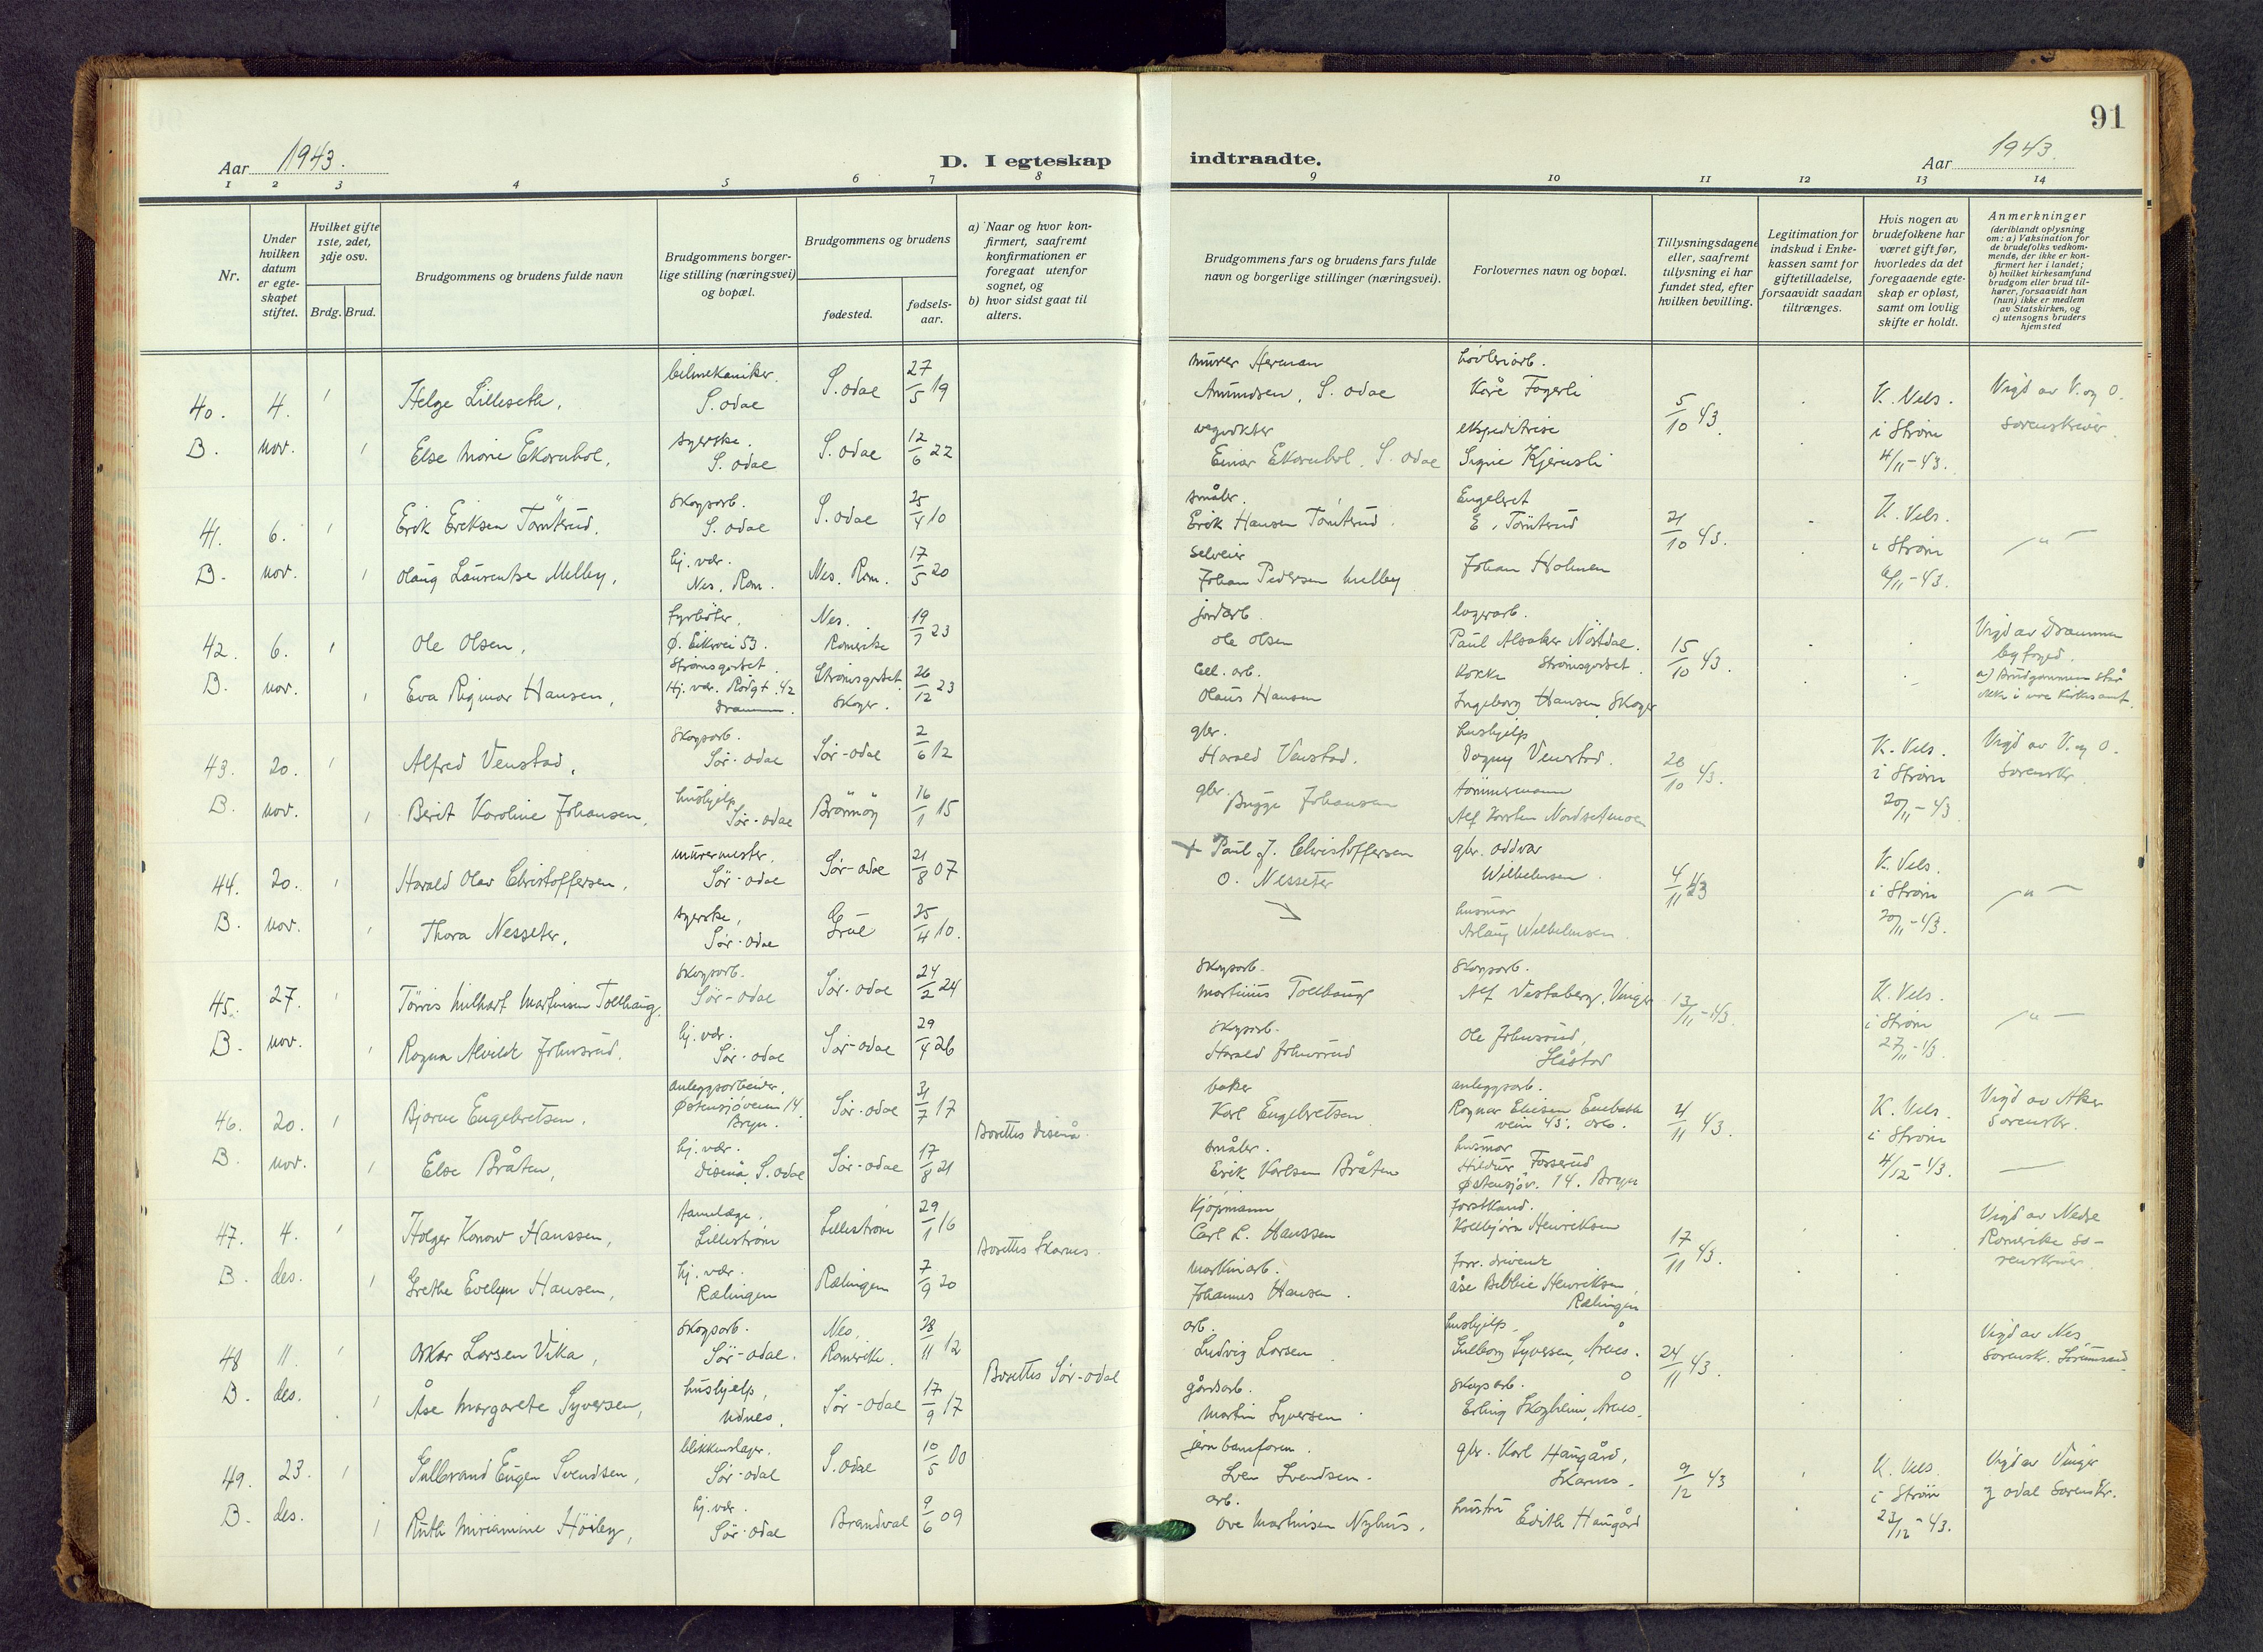 91
Aar 1943.
D. I egteskap indtraadte.
Aar 1943.
1 2 3 4 5 6 7 8 9 10 11 12 13 14
Nr.
Under hvilken datum er egteskapet stiftet.
Hvilket gifte 1ste, 2det, 3dje osv.
Brdg. Brud.
Brudgommens og brudens fulde navn
Brudgommens borgerlige stilling (næringsvei) og bopæl.
Brudgommens og brudens
fødested.
fødselsaar.
a) Naar og hvor konfirmert, saafremt konfirmationen er foregaat utenfor sognet, og
b) hvor sidst gaat til alters.
Brudgommens fars og brudens fars fulde navn og borgerlige stillinger (næringsvei).
Forlovernes navn og bopæl.
Tillysningsdagene eller, saafremt tillysning ei har fundet sted, efter hvilken bevilling.
Legitimation for indskud i Enkekassen samt for giftetilladelse, forsaavidt saadan tiltrænges.
Hvis nogen av brudefolkene har været gift før, hvorledes da det foregaaende egteskap er opløst, samt om lovlig skifte er holdt.
Anmerkninger (deriblandt oplysning om: a) Vaksination for de brudefolks vedkommende, der ikke er konfirmert her i landet; b) hvilket kirkesamfund brudgom eller brud tilhører, forsaavidt han (hun) ikke er medlem av Statskirken, og c) utensogns bruders hjemsted
40. 4. 1 Helge Lilleseth, bilmekaniker. S. Odal S. Odal 27/5 19 murer Herman Amundsen, S. Odal høvleriarb. Kåre Fagerli 5/10 43. K. Vels. i Strøm 4/11-43. Vigd av V. og O. sorenskriver.
B. nov. 1 Else Marie Ekornhol, syerske. S. Odal S. Odal 12/6 22 vegvokter Einar Ekornhol, S. Odal ekspeditrise Signe Kjernsli
41. 6. 1 Erik Eriksen Tørnterud. skogsarb. S. Odal S. Odal 25/4 10 småbr. Erik Hansen Tørnterud. Engebret E. Tørnterud 21/10 43. K. Vels. i Strøm 6/11-43. — " —
B. nov. 1 Olaug Laurentse Melby, hj. vær. Nes, Rom. Nes, Rom. 17/5 20 selveier Johan Pedersen Melby Johan Holmen
42. 6. 1 Ole Olsen, fyrbøter, Ø. Eikervei 53. Strømsgodset. Nes. Romerike 19/7 23 jordarb. Ole Olsen lagerarb. Paul Alsaker Nøstdal. Strømsgodset. 15/10 43. Vigd av Drammen byfoged. a) Brudgommen står ikke i noe kirkesamf.
B. nov. 1 Eva Rigmor Hansen, Hj. vær. Rådgt. 42 Drammen. Strømsgodset. Skoger. 26/12 23 cell. arb. Olaus Hansen kokke Ingeborg Hansen, Skoger
43. 20. 1 Alfred Venstad, skogsarb. Sør-Odal Sør-Odal 2/6 12 gbr. Harald Venstad. hushjelp Dagny Venstad. 26/10 43. K. Vels. i Strøm 20/11-43 Vigd av V. og O. sorenskr.
B. nov. 1 Berit Karoline Johansen, hushjelp Sør-Odal Brønnøy 16/1 15 gbr. Brygge Johansen tømmermann Alf Nordsetmoen
44. 20. 1 Harald Olav Christoffersen, murermester. Sør-Odal Sør-Odal 21/8 07 + Paul J. Christoffersen gbr. Oddvar Wilhelmsen. 4/11 43 K. Vels. i Strøm 20/11-43. — " —
B. nov. 1 Thora Nesseter, syerske, Sør-Odal Grue 25/4 10. O. Nesseter husmor Aslaug Wilhelmsen.
45. 27. 1 Tørris Milhart Martinsen Tollhaug, skogsarb. Sør-Odal Sør-Odal 24/2 24 skogsarb. Martinus Tollhaug skogsarb. Alf Vestaberg, Vinger 13/11-43. K. Vels. i Strøm 27/11-43. — " —
B. nov. 1 Ragna Alvilde Johnsrud. hj. vær. Sør-Odal Sør-Odal 29/4 26 skogsarb. Harald Johnsrud Ole Johnsrud,
46. 20. 1 Bjarne Engebretsen. anleggsarbeider. Østensjøveien 14. Bryn. Sør-Odal 31/7 17 Bosettes Disenå. baker Karl Engebretsen anleggsarb. Ragnar Eliesen Enebakkveien 43. Oslo. 4/11 43. K. Vels. i Strøm 4/12-43. Vigd av Aker sorenskr.
B. nov. 1 Else Bråten, hj. vær. Disenå, S. Odal Sør-Odal 17/8 21 småbr. Erik Karlsen Bråten husmor Hildur Fosserud Østensjøv. 14. Bryn —
47. 4. 1 Holger Konow Hanssen, tannlæge. Lillestrøm Lillestrøm 29/1 16 Bosettes Skarnes. Kjøpmann Carl L. Hanssen forstkand. Kolbjørn Henriksen 17/11 43. Vigd av Nedre Romerike sorenskriver.
B. des. 1 Grethe Evelyn Hansen, hj. vær. Rælingen Rælingen 7/9 20 maskinarb. Johannes Hansen. forr. drivende Åse Bibbie Henriksen, Rælingen
48 11. 1 Oskar Larsen Vika, skogsarb. Sør-Odal. Nes, Romerike. 28/11 12 Bosettes Sør-Odal arb. Ludvig Larsen hushjelp. Gulborg Syversen, Årnes. 24/11 43. Vigd av Nes sorenskr. Sørumsand
B. des. 1 Åse Margarete Syversen, hushjelp, Udnes. Sør-Odal 17/9 17 gårdsarb. Martin Syversen. skogsarb. Erling Skogheim, Årnes.
49. 23. 1 Gulbrand Eugen Svendsen, blikkenslager. Sør-Odal S. Odal 10/5 00 jernbaneform. Sven Svendsen. gbr. Karl Haugård, Skarnes. 9/12 43 K. Vels. i Strøm 23/12-43. Vigd av Vinger g Odal sorenskr.
B. des. 1 Ruth Miriamine Høiby, hj. vær. Sør-Odal Brandval 9/6 09 arb. Ove Martinsen Nyhus. hustru Edith Haugård